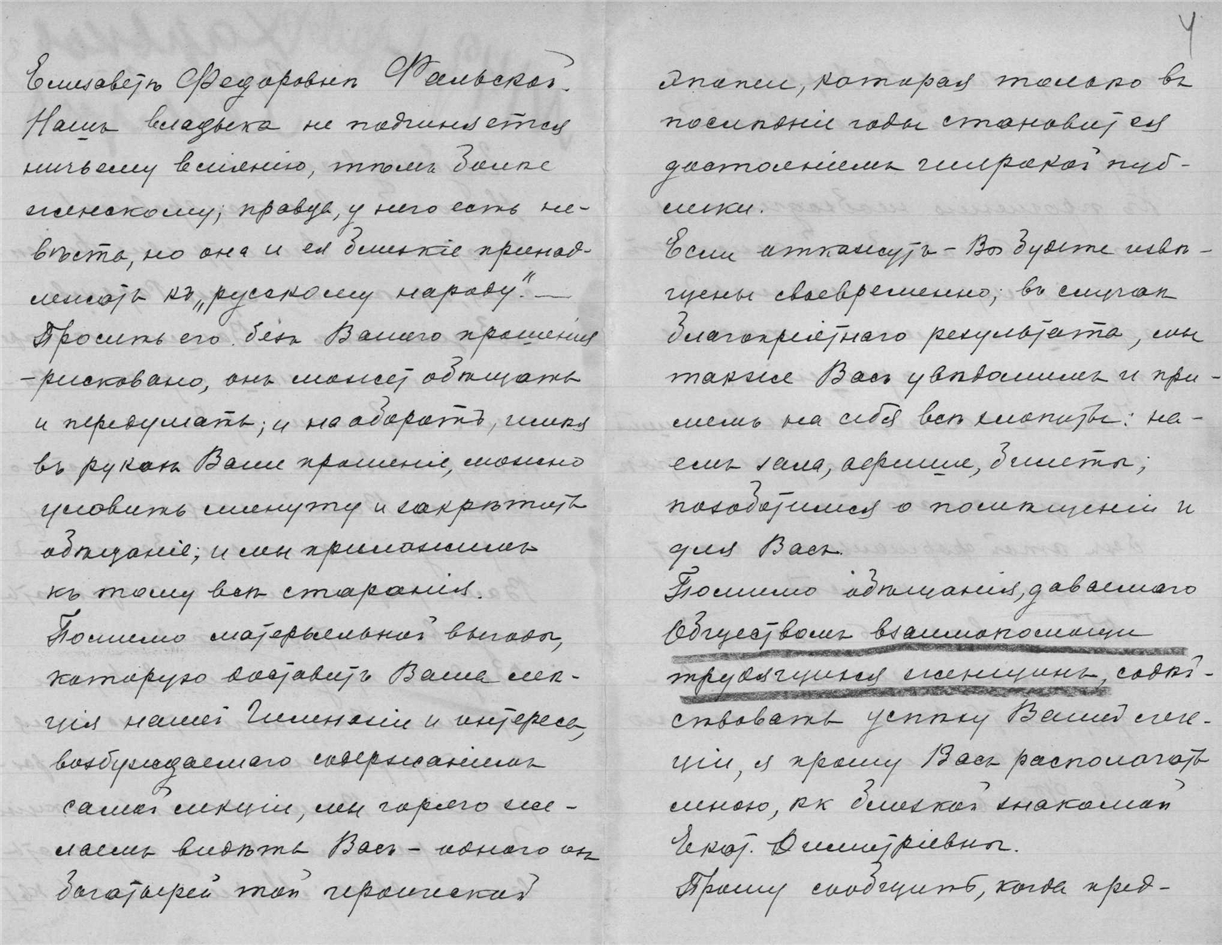 Елизаветѣ Федоровнѣ Фальской.
Нашъ владыка не подчиняется
ничьему вліянію, тѣмъ болѣе
женскому; правда, у него есть не-
вѣста, но она и ея близкіе принад-
лежатъ къ „русскому народу".—
Просить его безъ Вашего прошенія
-рисковано, онъ можетъ обѣщать
и передумать; и наоборотъ, имѣя
въ рукахъ Ваше прошеніе, можно
уловить минуту и закрѣпить
обѣщаніе; и мы приложимъ
къ тому всѣ старанія.
Помимо матерьяльной выгоды,
которую доставитъ Ваша лек-
ція нашей Гимназіи и интереса,
возбуждаемаго содержаніемъ
самой лекціи, мы горячо же-
лаемъ видѣть Васъ – одного из
богатырей той героической
4
эпопеи, которая только въ
послѣдніе годы становится
достояніемъ широкой пуб-
лики.
Если откажутъ – Вы будете извѣ-
щены своевременно; въ случаѣ
благопріятнаго результата, мы
также Васъ увѣдомимъ и при-
мемъ на себя всѣ хлопоты: на-
емъ зала, афиши, билеты;
позаботимся о помѣщеніи и
для Васъ.
Помимо обѣщанія, даваемаго
Обществомъ взаимопомощи
трудящихся женщинъ, содѣй-
ствовать успѣху Вашей лек-
ціи, я прошу Васъ располагать
мною, как близкой знакомой
Екат. Димитріевны.
Прошу сообщить, когда пред-